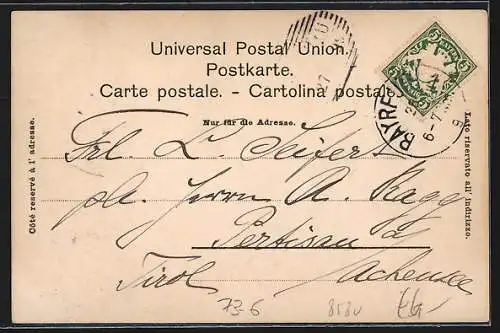 Universal Postal Union.
Postkarte.
Carte postale. - Cartolina postale.
Nur für die Adresse.
Côté reservé à l'adresse.
Lato riservato all'indirizzo.
5 BAYERN 5
BAYR
6-7
Frl. L. Seifert
pl. Herrn A. Ragg
Pertisau
Tirol Achensee
73-6
858v